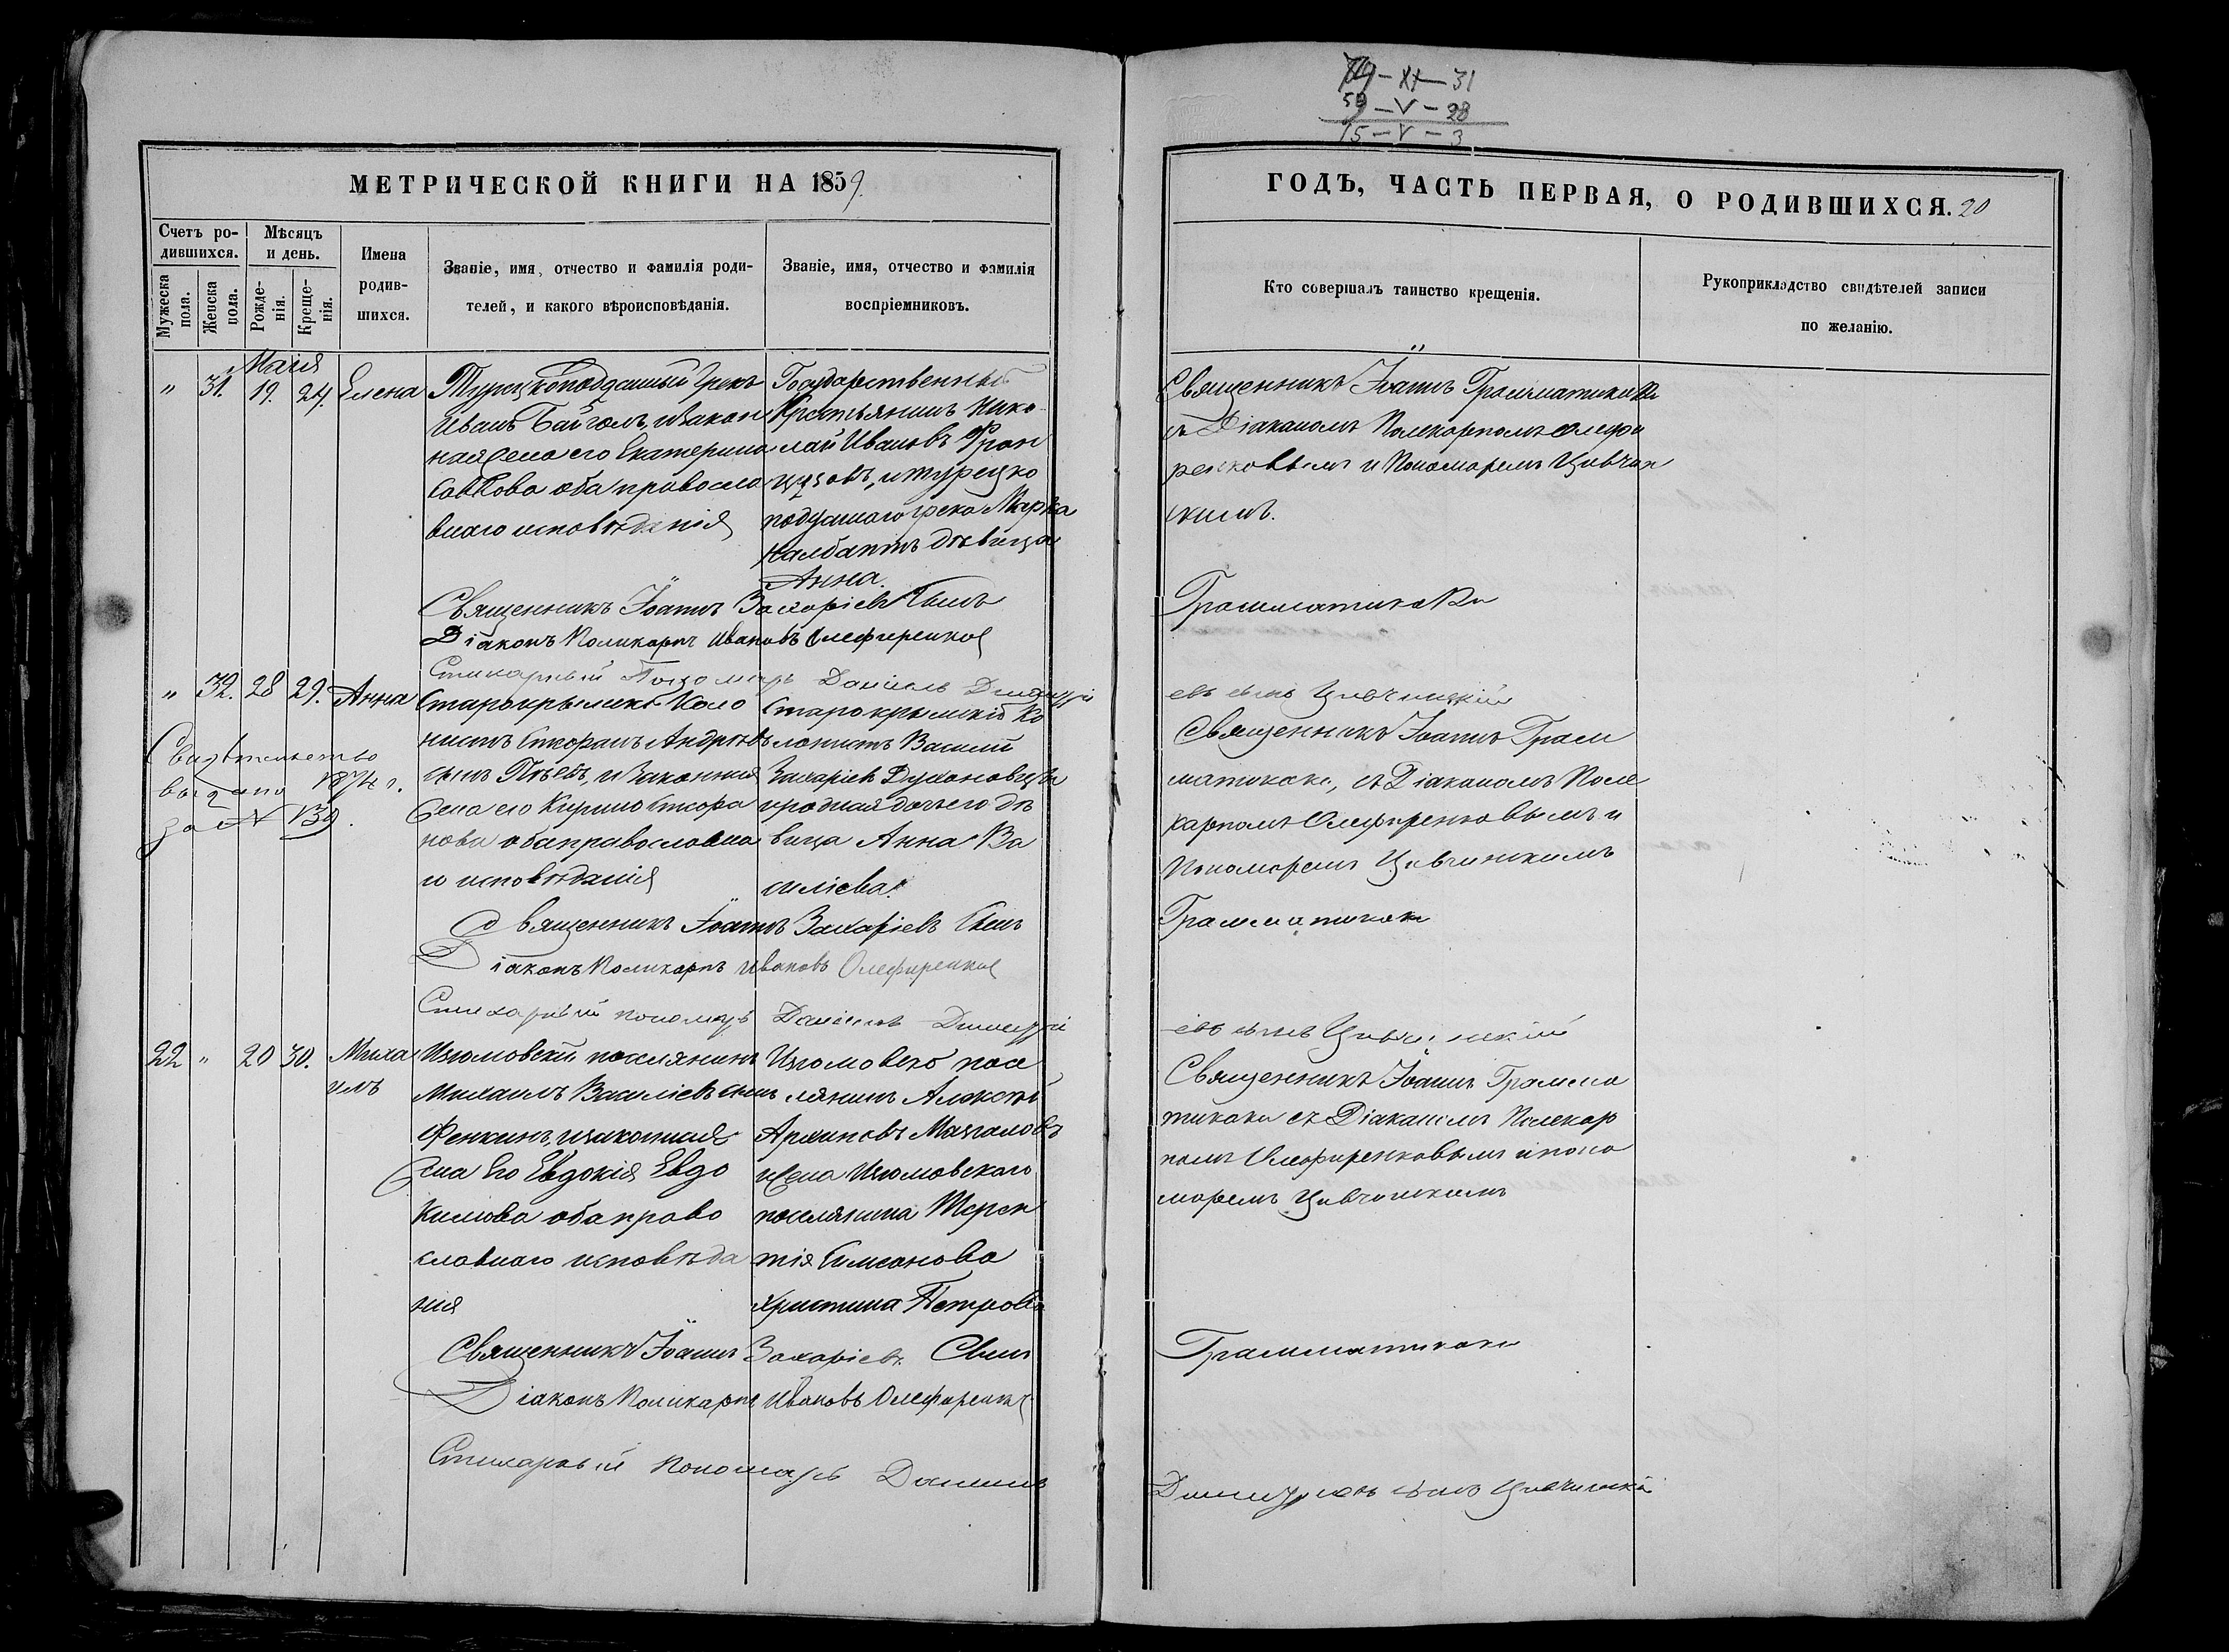 74 — XI — 31
59 — V — 28
15 — V — 3
МЕТРИЧЕСКОЙ КНИГИ НА 1859.
ГОДЪ, ЧАСТЬ ПЕРВАЯ, О РОДИВШИХСЯ. 20
Счетъ ро-
дившихся.
Мужеска
пола.
Женска
пола.
Мѣсяцъ
и день.
Рожде-
нія.
Креще-
нія.
Имена
родив-
шихся.
Званіе, имя, отчество и фамилія роди-
телей, и какого вѣроисповѣданія.
Званіе, имя, отчество и фамилія
воспріемниковъ.
Кто совершалъ таинство крещенія.
Рукоприкладство свидѣтелей записи
по желанію.
Маія
" 31. 19. 24. Елена
Турецкоподданый Грекъ
Иванъ
и закон
ная жена его Екатерина
Саввова оба правосла
внаго исповѣданія
Государственный
Крестьянинъ Нико
лай Ивановъ Фран
цузовъ, и турецко
подданаго грека Марка
Калбантъ дѣвица
Анна.
Священникъ Іоаннъ Грамматикаки
съ Діакономъ Поликарпомъ Олефи
ренковымъ и Пономаремъ Цивчин
скимъ.
Священникъ Іоаннъ Захаріевъ Сынъ Грамматикаки
Діаконъ Поликарпъ Ивановъ Олефиренков
Стихарный Пономарь Даніилъ Дмитрі
евъ сынъ Цивчинскій
" 32. 28 29. Анна
Свидѣтельство
выдано 1874 г.
за № 139.
Старокрымскій Коло
нистъ
Андреевъ
сынъ
и законная
жена его
обаправославна
го исповѣданія
Старокрымскій Ко
лонистъ Василій
Захаріевъ
иродная дочь его дѣ
вица Анна Ва
силіева.
Священникъ Іоаннъ Грам
матикаки, съ Діакономъ Поли
карпомъ Олефиренковымъ и
Пономаремъ Цивчинскимъ
Священникъ Іоаннъ Захаріевъ Сынъ Грамматикаки
Діаконъ Поликарпъ Ивановъ Олефиренков
Стихарный пономарь Даніилъ Дмитрі
евъ сынъ Цивчинскій
22 " 20 30. Миха
илъ
Изюмовскій поселянинъ
Михаилъ Васильевъ сынъ
Фенкинъ, и законная
жена Его Евдокія Евдо
кимова оба право
славнаго исповѣда
нія
Изюмовскій посе
лянинъ Алексѣй
Архиповъ
и жена Изюмовскаго
поселянина Терен
тія Симонова
Христина Петрова
Священникъ Іоаннъ Грамма
тикаки съ Діакономъ Поликар
помъ Олефиренковымъ и поно
маремъ Цивчинскимъ
Священникъ Іоаннъ Захаріевъ Сынъ Грамматикаки
Діаконъ Поликарпъ Ивановъ Олефиренков
Стихарный Пономарь Даніилъ
Дмитріевъ сынъ Цивчинскій